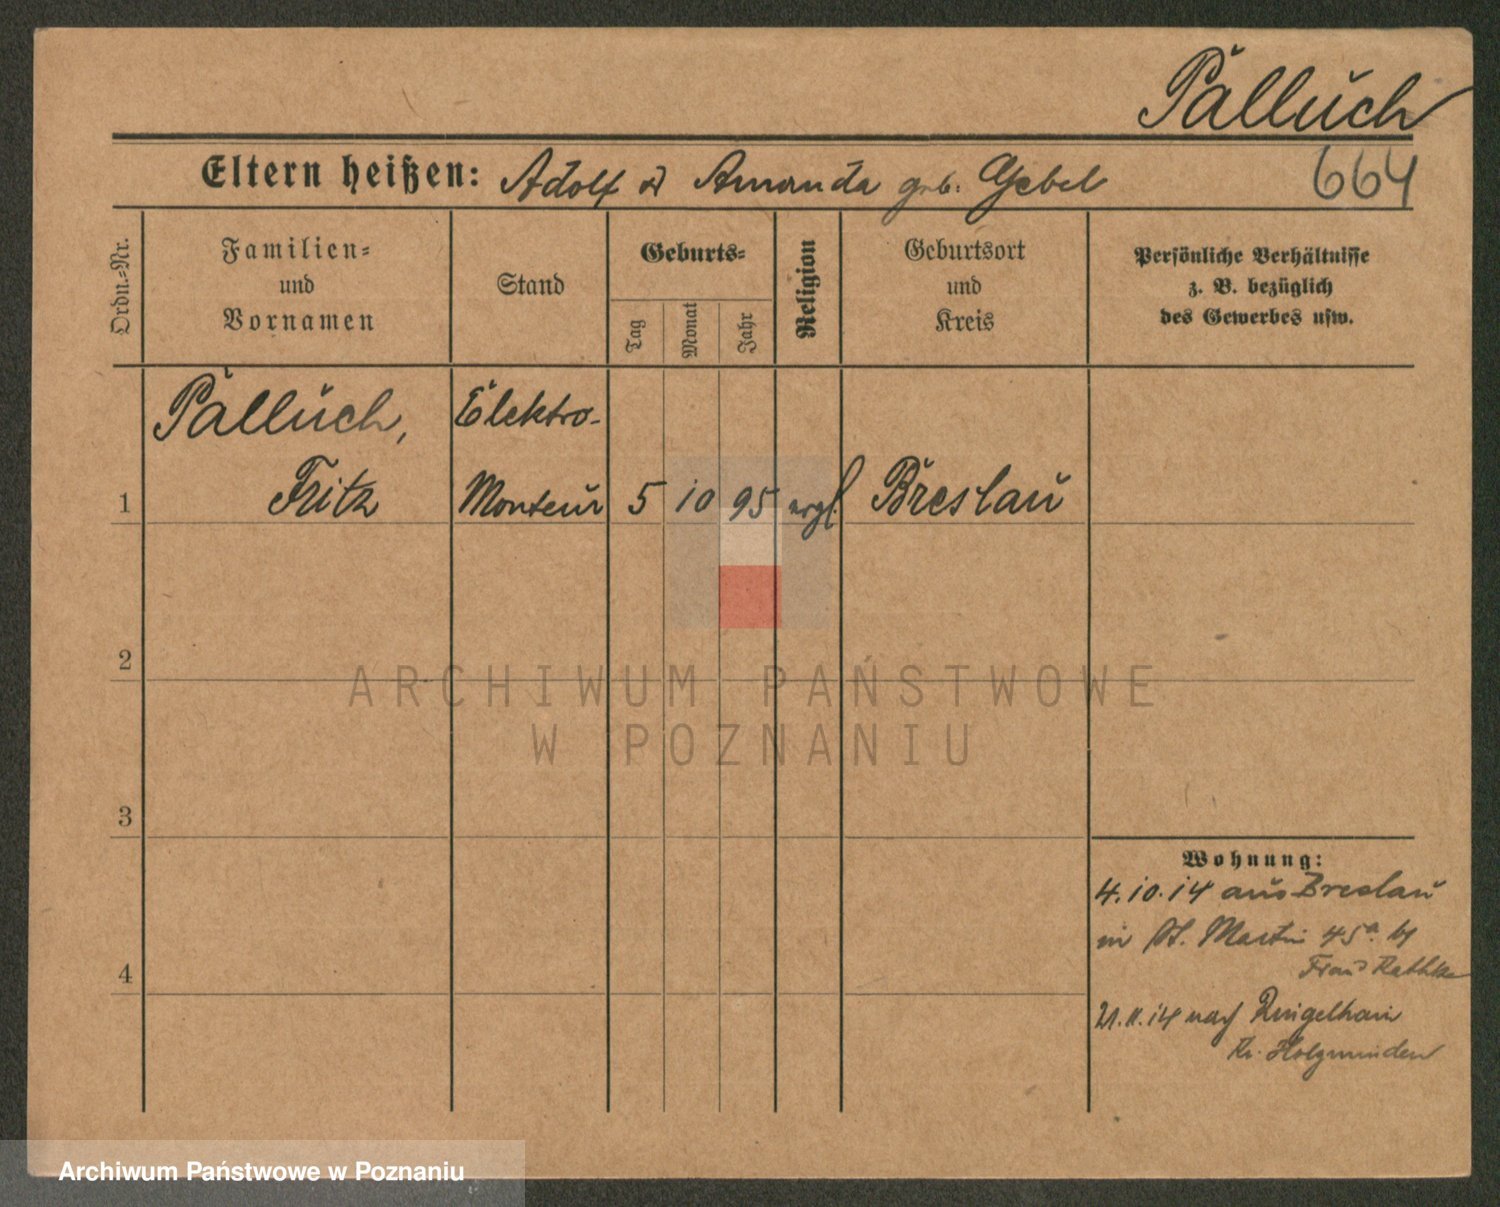 Palluch
Eltern heißen: Adolf u Amanda geb: Gebel
664
Ordn.-Nr.
Familien-
und
Vornamen
Stand
Geburts-
Tag
Monat
Jahr
Religion
Geburtsort
und
Kreis
Persönliche Verhältnisse
z. B. bezüglich
des Gewerbes usw.
Palluch, Elektro-
1 Fritz Monteur 5 10 95 evgl. Breslau
2
3
4
Wohnung:
4.10.14 aus Breslau
in St. Martin 45a. b/
Frau Rathke
21.11.14 nach
Kr. Holzminden
ARCHIWUM PAŃSTWOWE
W POZNANIU
Archiwum Państwowe w Poznaniu